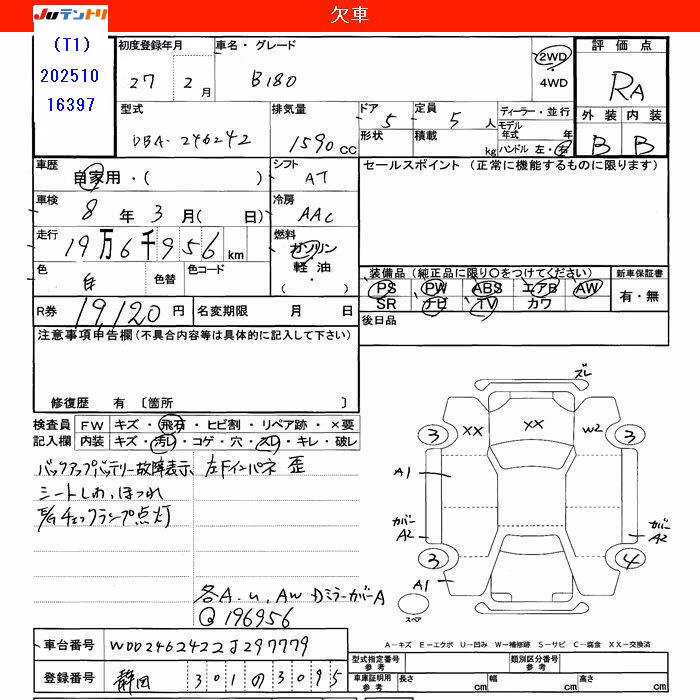 欠車
JUテントリ
(T1)
202510
16397
初度登録年月
27 2月
車名・グレード
B180
2WD
4WD
評価点
RA
外装 内装
B B
型式
DBA-246242
排気量
1590cc
ドア 5
形状
定員 5人
積載 kg
ディーラー・並行
モデル年式 年
ハンドル 左・右
車歴
自家用・( )
シフト
AT
セールスポイント (正常に機能するものに限ります)
車検
8年3月( 日)
冷房
AAC
走行
19万6千956km
燃料
ガソリン
軽油
・( )
色
白
色替
色コード
装備品 (純正品に限り○をつけてください)
新車保証書
PS PW ABS エアB AW
SR ナビ TV カワ
有・無
R券 19,120円
名変期限 月 日
後日品
注意事項申告欄(不具合内容等は具体的に記入して下さい)
修復歴 有 〔箇所 〕
検査員記入欄
FW キズ・飛石・ヒビ割・リペア跡・×要
内装 キズ・汚レ・コゲ・穴・スレ・キレ・破レ
バックアップバッテリー故障表示、左Fインパネ 歪
シートしわ、ほつれ
E/Gチェックランプ点灯
各A.U, AW DミラーカバーA
Q196956
ズレ
3 XX XX W2 3
A1
カバー A2
カバー A2
3 A1 4
スペア
A-キズ E-エクボ U-凹み W-補修跡 S-サビ C-腐食 XX-交換済
車台番号 WDD2462422J297779
登録番号 静岡 301の3095
型式指定番号 参考
類別区分番号 参考
車庫証明用 参考
長さ cm
幅 cm
高さ cm